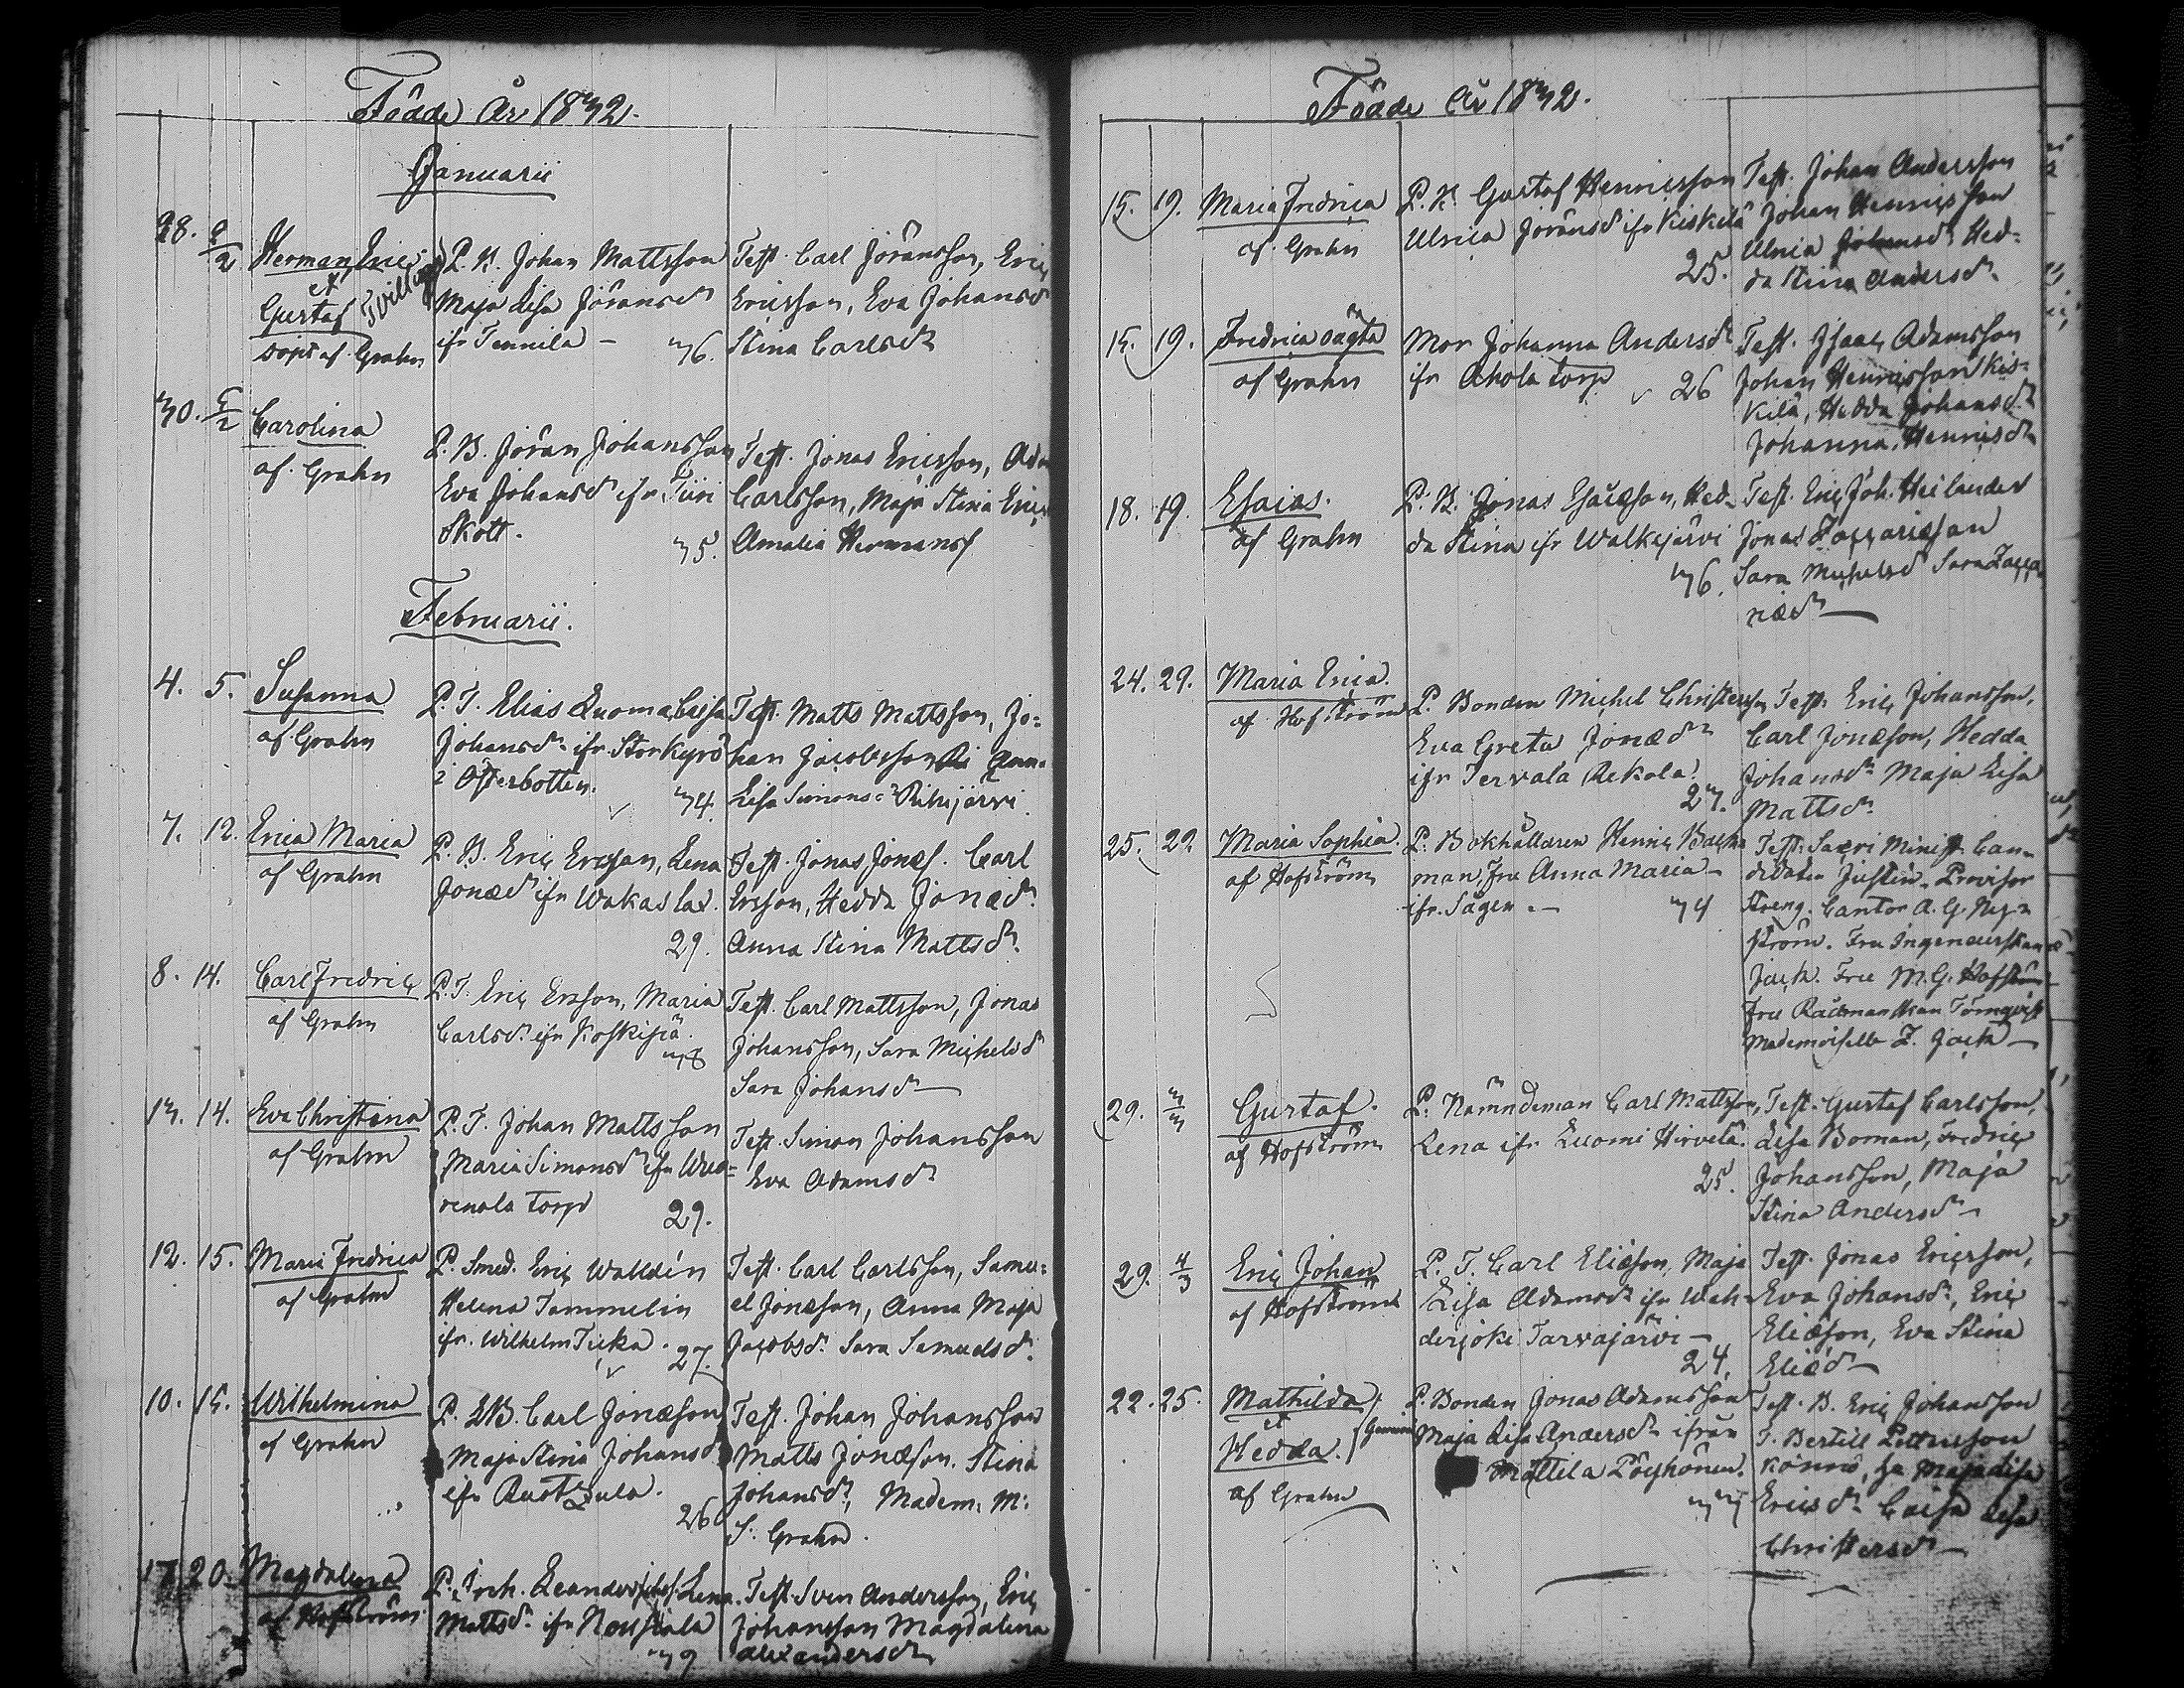 Födde År 1832.
Januarii
28. 2/2 Herman Eric
et
Gustaf
Tvillingar
döpt af Grahn
P. B. Johan Mattsson
Maja Lisa Jöransdr
ifr Tennilä – 36.
Test. Carl Jöransson, Eric
Ericsson, Eva Johansdr
Stina Carlsdr
30. 5/2 Carolina
af Grahn
P. B. Jöran Johansson
Eva Johansdr ifr Tiiri
Skott. 35.
Test. Jonas Ericsson, Adam
Carlsson, Maja Stina Erics
Amalia Hermans
Februarii.
4. 5. Susanna
af Grahn
P. T. Elias Luoma, Caisa
Johansdr ifr Storkyrö
i Österbotten. 34.
Test. Matts Mattsson, Jo=
han Jacobsson Anna
Lisa Simonsdr Rihijärvi.
7. 12. Erica Maria
af Grahn
P. B. Eric Ersson, Lena
Jonædr ifr Wakaslax. 29.
Test. Jonas Jonæs. Carl
Ersson, Hedda Jonædr
Anna Stina Mattsdr
8. 14. Carl Fredric
af Grahn
P. T. Eric Ersson, Maria
Carlsdr ifr Koskipiä. 38
Test. Carl Mattsson, Jonas
Johansson, Sara Michelsdr
Sara Johansdr
13. 14. Eva Christina
af Grahn
P. T. Johan Mattsson
Maria Simonsdr ifr Wuo=
renola torp 29.
Test. Simon Johansson
Eva Adamsdr
12. 15. Maria Fredrica
af Grahn
P. Smed. Eric Walldén
Helena Tammelin
ifr. Wilhelm Ticka. 27.
Test. Carl Carlsson, Samu=
el Jonæson, Anna Maja
Jacobsdr Sara Samuelsdr.
10. 15. Wilhelmina
af Grahn
P. LB. Carl Jonæson
Maja Stina Johansdr
ifr Ruotzula. 26
Test. Johan Johansson
Matts Jonæson. Stina
Johansdr, Madem: M:
S: Grahn.
17 20. Magdalena
af Hofström
P. Inh. Leander Lena
Mattsdr ifr Nousiala 39
Test. Sven Andersson, Eric
Johansson Magdalena
Alexandersdr
Födde År 1832.
15. 19. Maria Fredrica
af Grahn
P. B. Gustaf Henricsson
Ulrica Jöransdr ifr Kiskilä
25.
Test. Johan Andersson
Johan Henricsson
Ulrica Johansdr Hed=
da Stina Andersdr
15. 19. Fredrica oägta
af Grahn
Mor Johanna Andersdr
ifr Ahola torp 26
Test. Isaac Adamsson
Johan Henricsson Kis=
kilä, Hedda Johansdr
Johanna Henricsdr
18. 19. Esaias.
af Grahn
P. B. Jonas Esaiæson, Hed=
da Stina ifr Walkejärvi
36.
Test. Eric Joh. Heilander
Jonas Zacchariæson
Sara Michelsdr Sara Zaccha
riædr
24. 29. Maria Erica.
af Hofström
P. Bonden Michel Christersson
Eva Greta Jonædr
ifr Tervala Rekola.
23.
Test. Eric Johansson,
Carl Jonæson, Hedda
Johansdr Maja Lisa
Mattsdr
25. 29 Maria Sophia.
af Hofström
P. Bokhållaren Henric Back
man, Fru Anna Maria –
ifr. Sågen. – 34
Test. Sacri Minist. Can=
didaten Justin. Provisor
Streng. Cantor A. G. Ny=
ström. Fru Ingeneurskan
Jack. Fru M. G. Hofström
Fru Rådmanskan Törnqvist
Mademoiselle Z. Jack –
29. 3/3 Gustaf.
af Hofström
P. Nämndeman Carl Mattsson,
Lena ifr Luomi Hirvelä.
25.
Test. Gustaf Carlsson,
Lisa Boman, Fredric
Johansson, Maja
Stina Andersdr
29. 4/3 Eric Johan
af Hofström
P. T. Carl Eliæson, Maja
Lisa Adamsdr ifr Wah=
derjoki Tarvajärvi –
24.
Test. Jonas Ericsson,
Eva Johansdr, Eric
Eliæson, Eva Stina
Eliædr
22. 25. Mathilda
et
Hedda.
af Grahn
P. Bonden Jonas Adamsson
Maja Lisa Andersdr ifrån
Mattila Pöyhönen.
33
Test. B. Eric Johansson
T. Bertill Pettersson
Könnö, Maja Lisa
Ericsdr Caisa Lisa
Christersdr